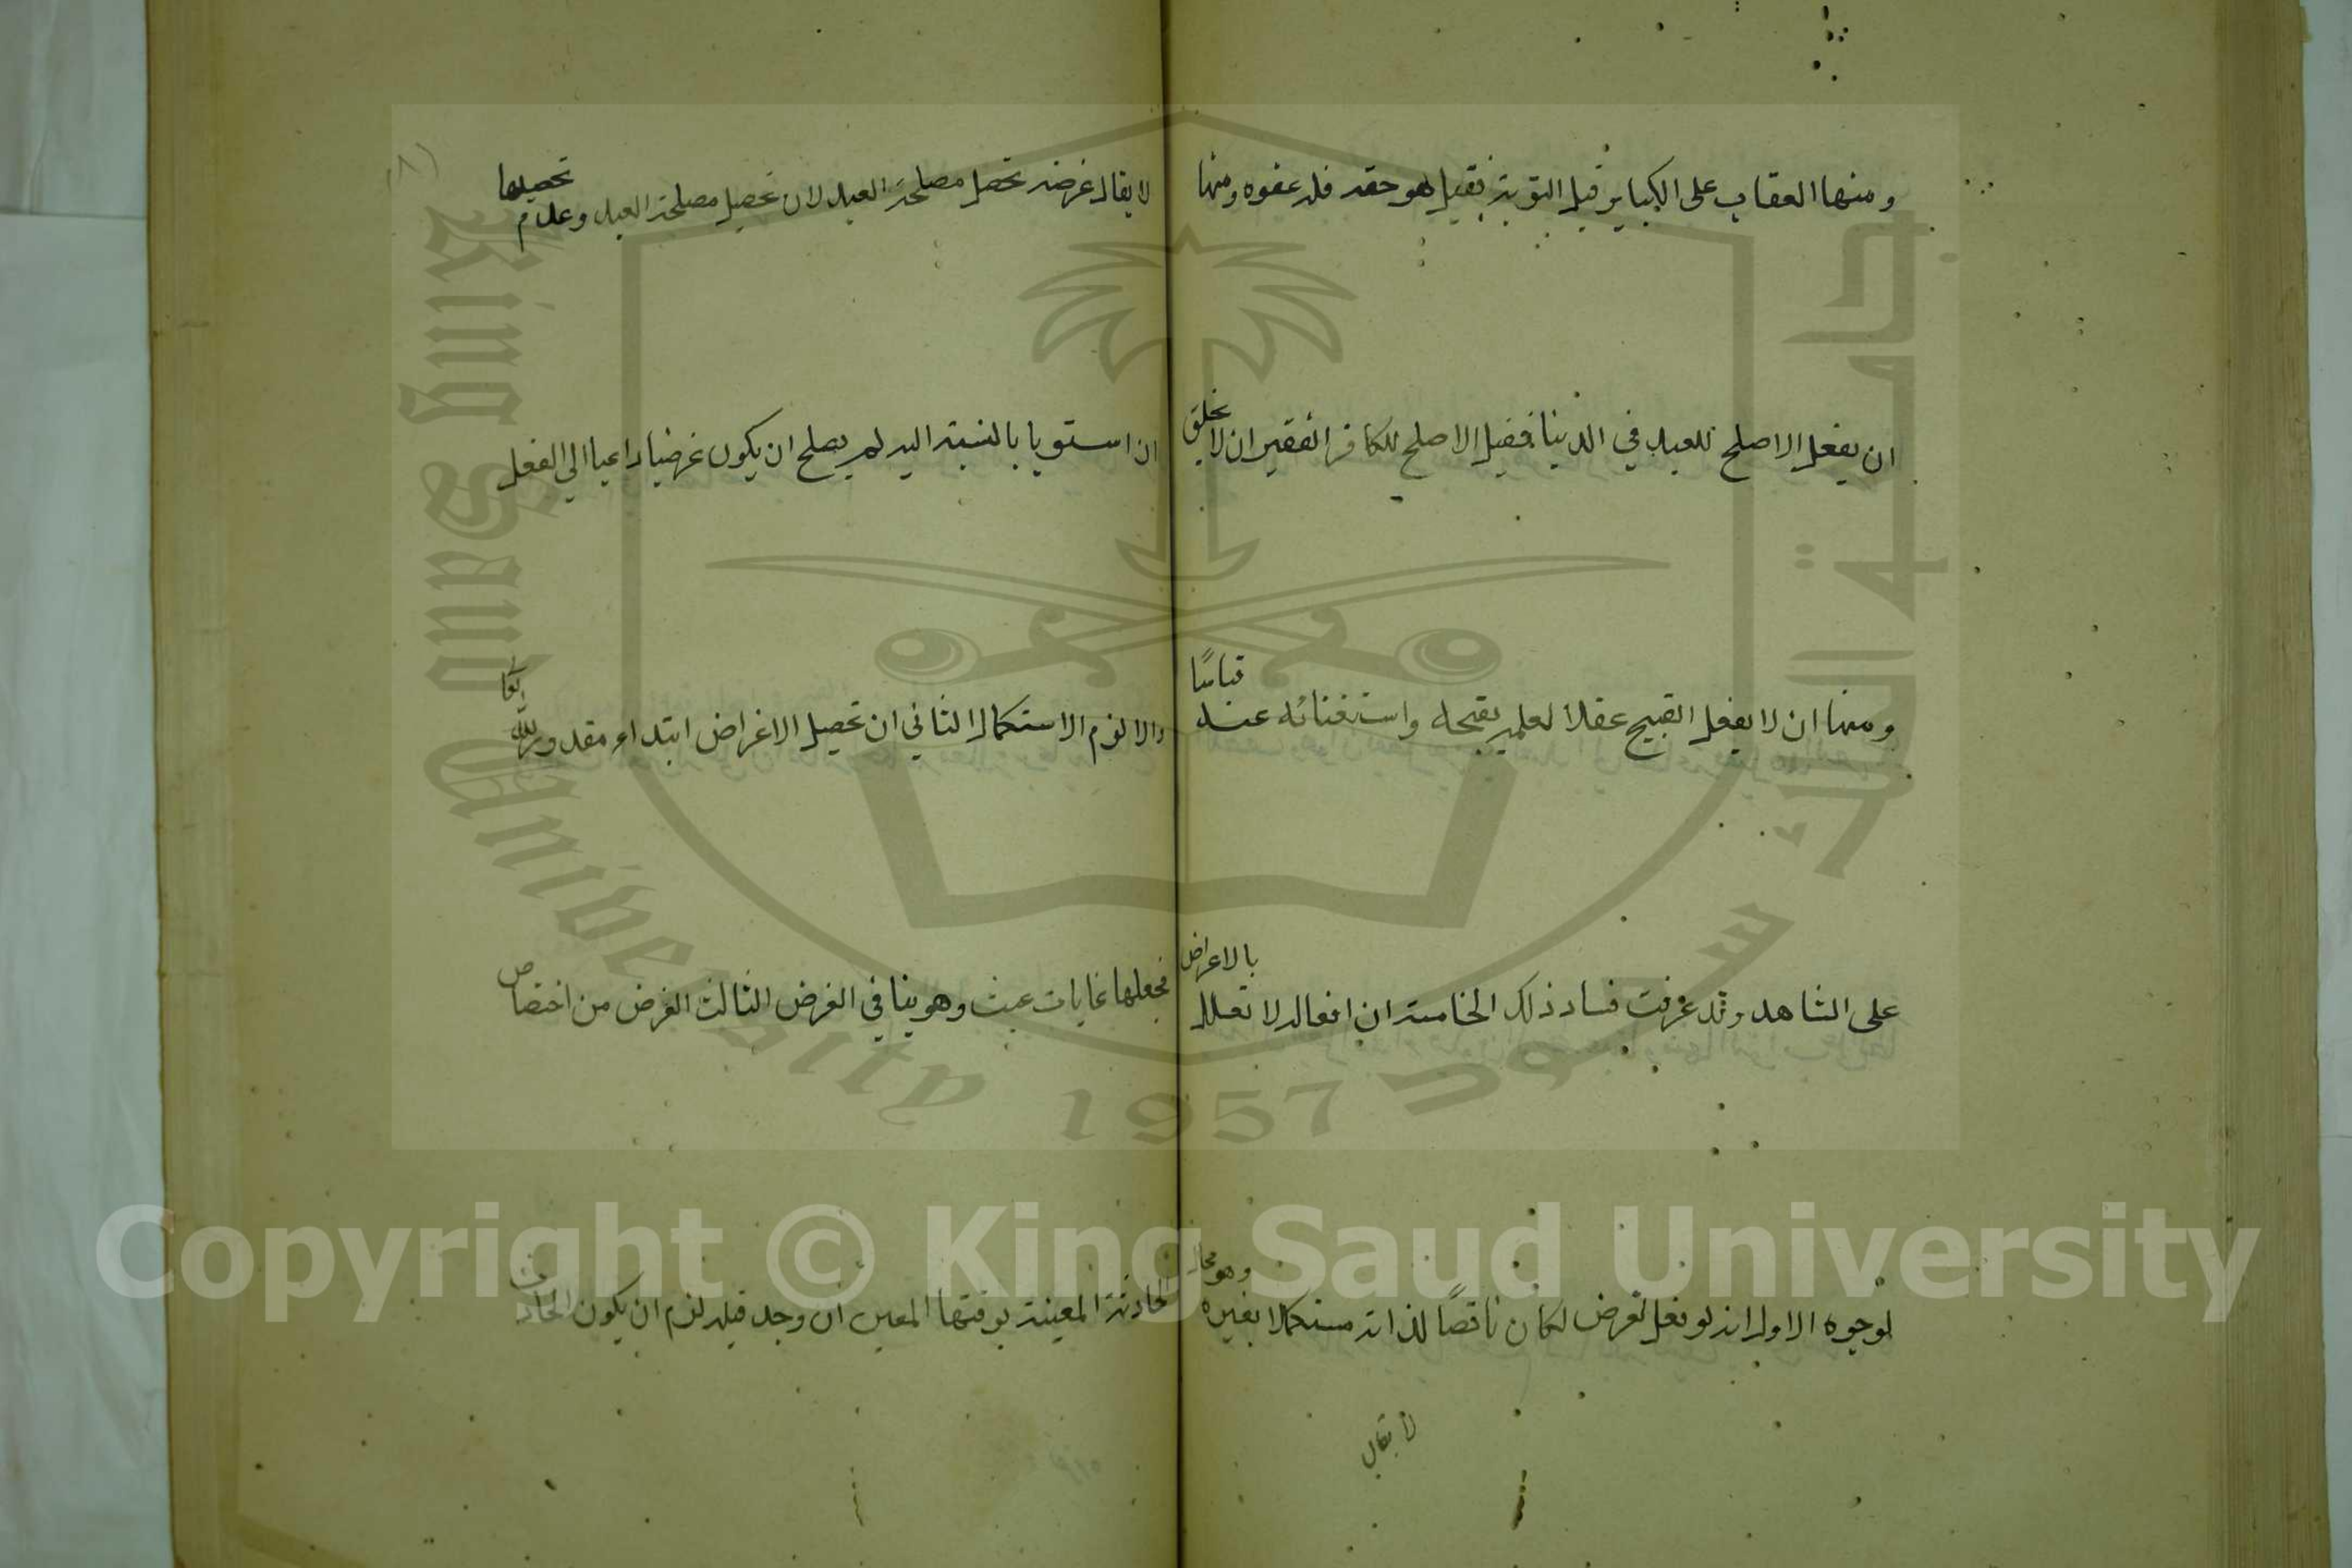 ومنها العقاب على الكباير قبل التوبة فقيل هو حقه فله عفوه ومنها
ان يفعل الاصلح للعبد في الدنيا فقيل الاصلح للكافر الفقير ان لا يخلق
ومنها ان لا يفعل القبيح عقلا لعلمه بقبحه واستغنائه عنه قياسًا
على الشاهد وقد عرفت فساد ذلك الخامسة ان افعاله لا تعلل بالاغراض
لوجوه الاول انه لو فعل لغرض لكان ناقصًا لذاته مستكملا بغيره وهو محال
لا يقال
(٨)
لا يقال غرضه تحصل مصلحة العبد لان تحصيل مصلحة العبد وعدم تحصيلها
ان استويا بالنسبة اليه لم يصلح ان يكون غرضيا داعيا الي الفعل
والا لزم الاستكمال الثاني ان تحصيل الاغراض ابتداء مقدور لله تعا
فجعلها غايات عبث وهو ينافي الغرض الثالث الغرض من اختصاص
الحادثة المعينة بوقتها المعين ان وجد قبله لزم ان يكون الحادث
جامعة الملك سعود
King Saud University 1957
Copyright © King Saud University